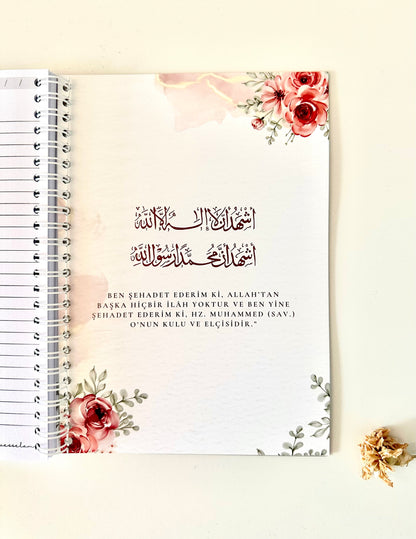 اشهد ان لا اله الا الله
اشهد ان محمدا رسول الله
BEN ŞEHADET EDERİM Kİ, ALLAH'TAN
BAŞKA HİÇBİR İLÂH YOKTUR VE BEN YİNE
ŞEHADET EDERİM Kİ, HZ. MUHAMMED (SAV.)
O'NUN KULU VE ELÇİSİDİR."